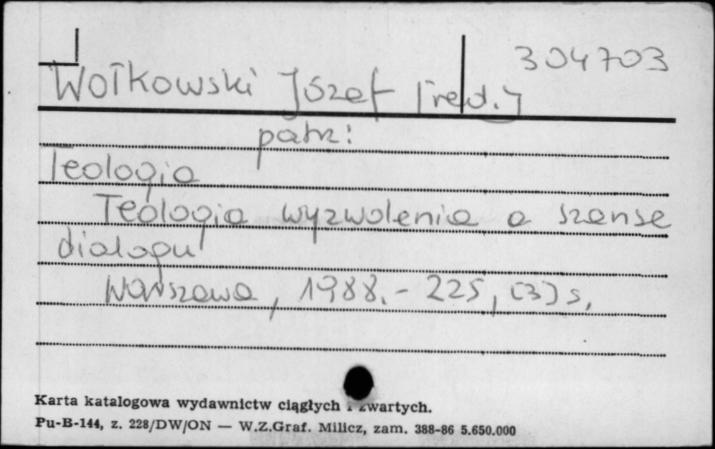 304703
Wołkowski Józef [red.]
patrz:
Teologia
Teologia wyzwolenia a szanse
dialogu
Warszawa, 1988. - 225, [3] s.
Karta katalogowa wydawnictw ciągłych i zwartych.
Pu-B-144, z. 228/DW/ON — W.Z.Graf. Milicz, zam. 388-86 5.650.000